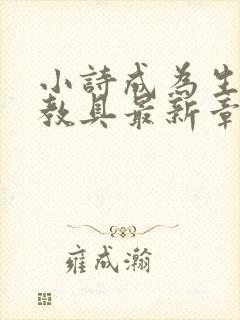 小詩成為生
教具最新章
雍成瀚